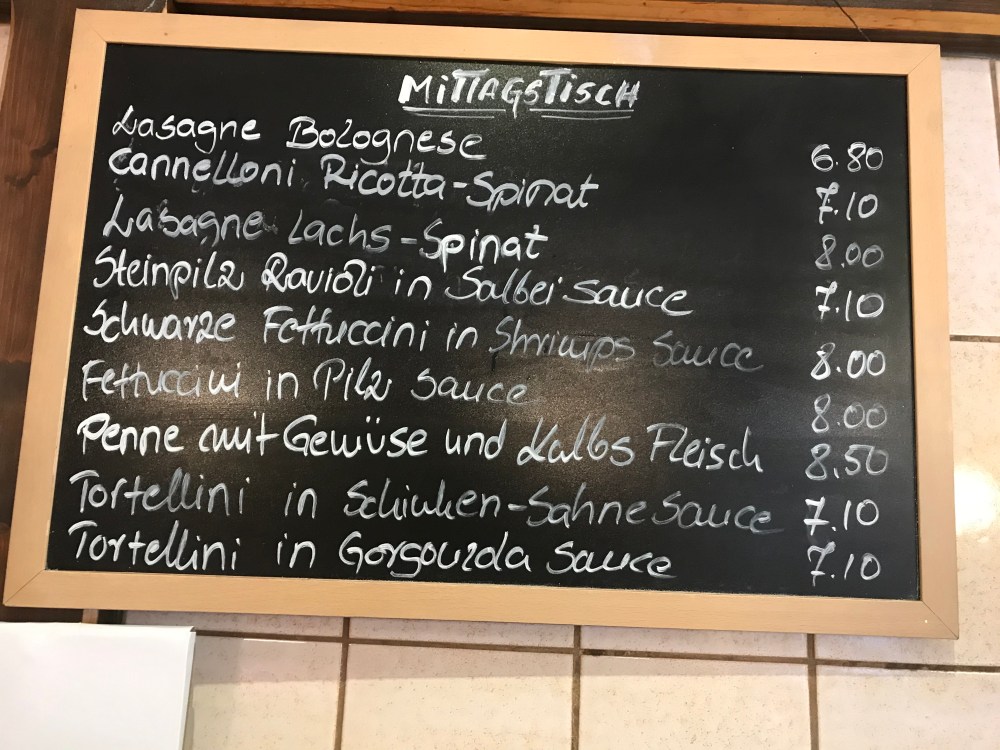 MITTAGSTISCH
Lasagne Bolognese 6.80
Cannelloni Ricotta-Spinat 7.10
Lasagne Lachs-Spinat 8.00
Steinpilz Ravioli in Salbei sauce 7.10
Schwarze Fettuccini in Shrimps Sauce 8.00
Fettuccini in Pilz Sauce 8.00
Penne mit Gewüse und Kalbs Fleisch 8,50
Tortellini in Schinken-Sahne Sauce 7.10
Tortellini in Gorgonzola Sauce 7.10